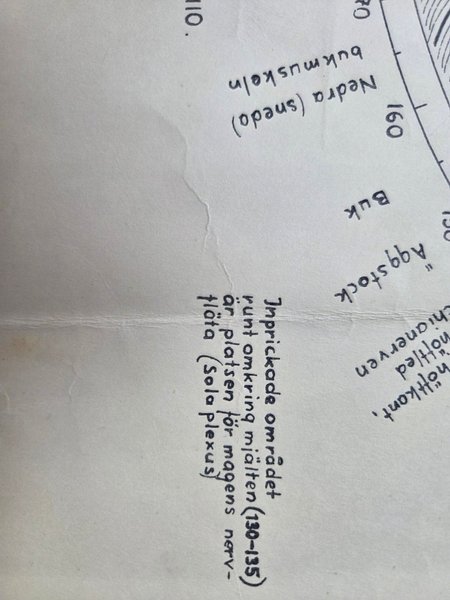 110.
70
Nedra (sneda)
bukmuskeln
160
Buk
Äggstock
höftkant,
höftled
chianerven
Inprickade området
runt omkring mjälten (130-135)
är platsen för magens nerv-
fläta (Solaplexus)